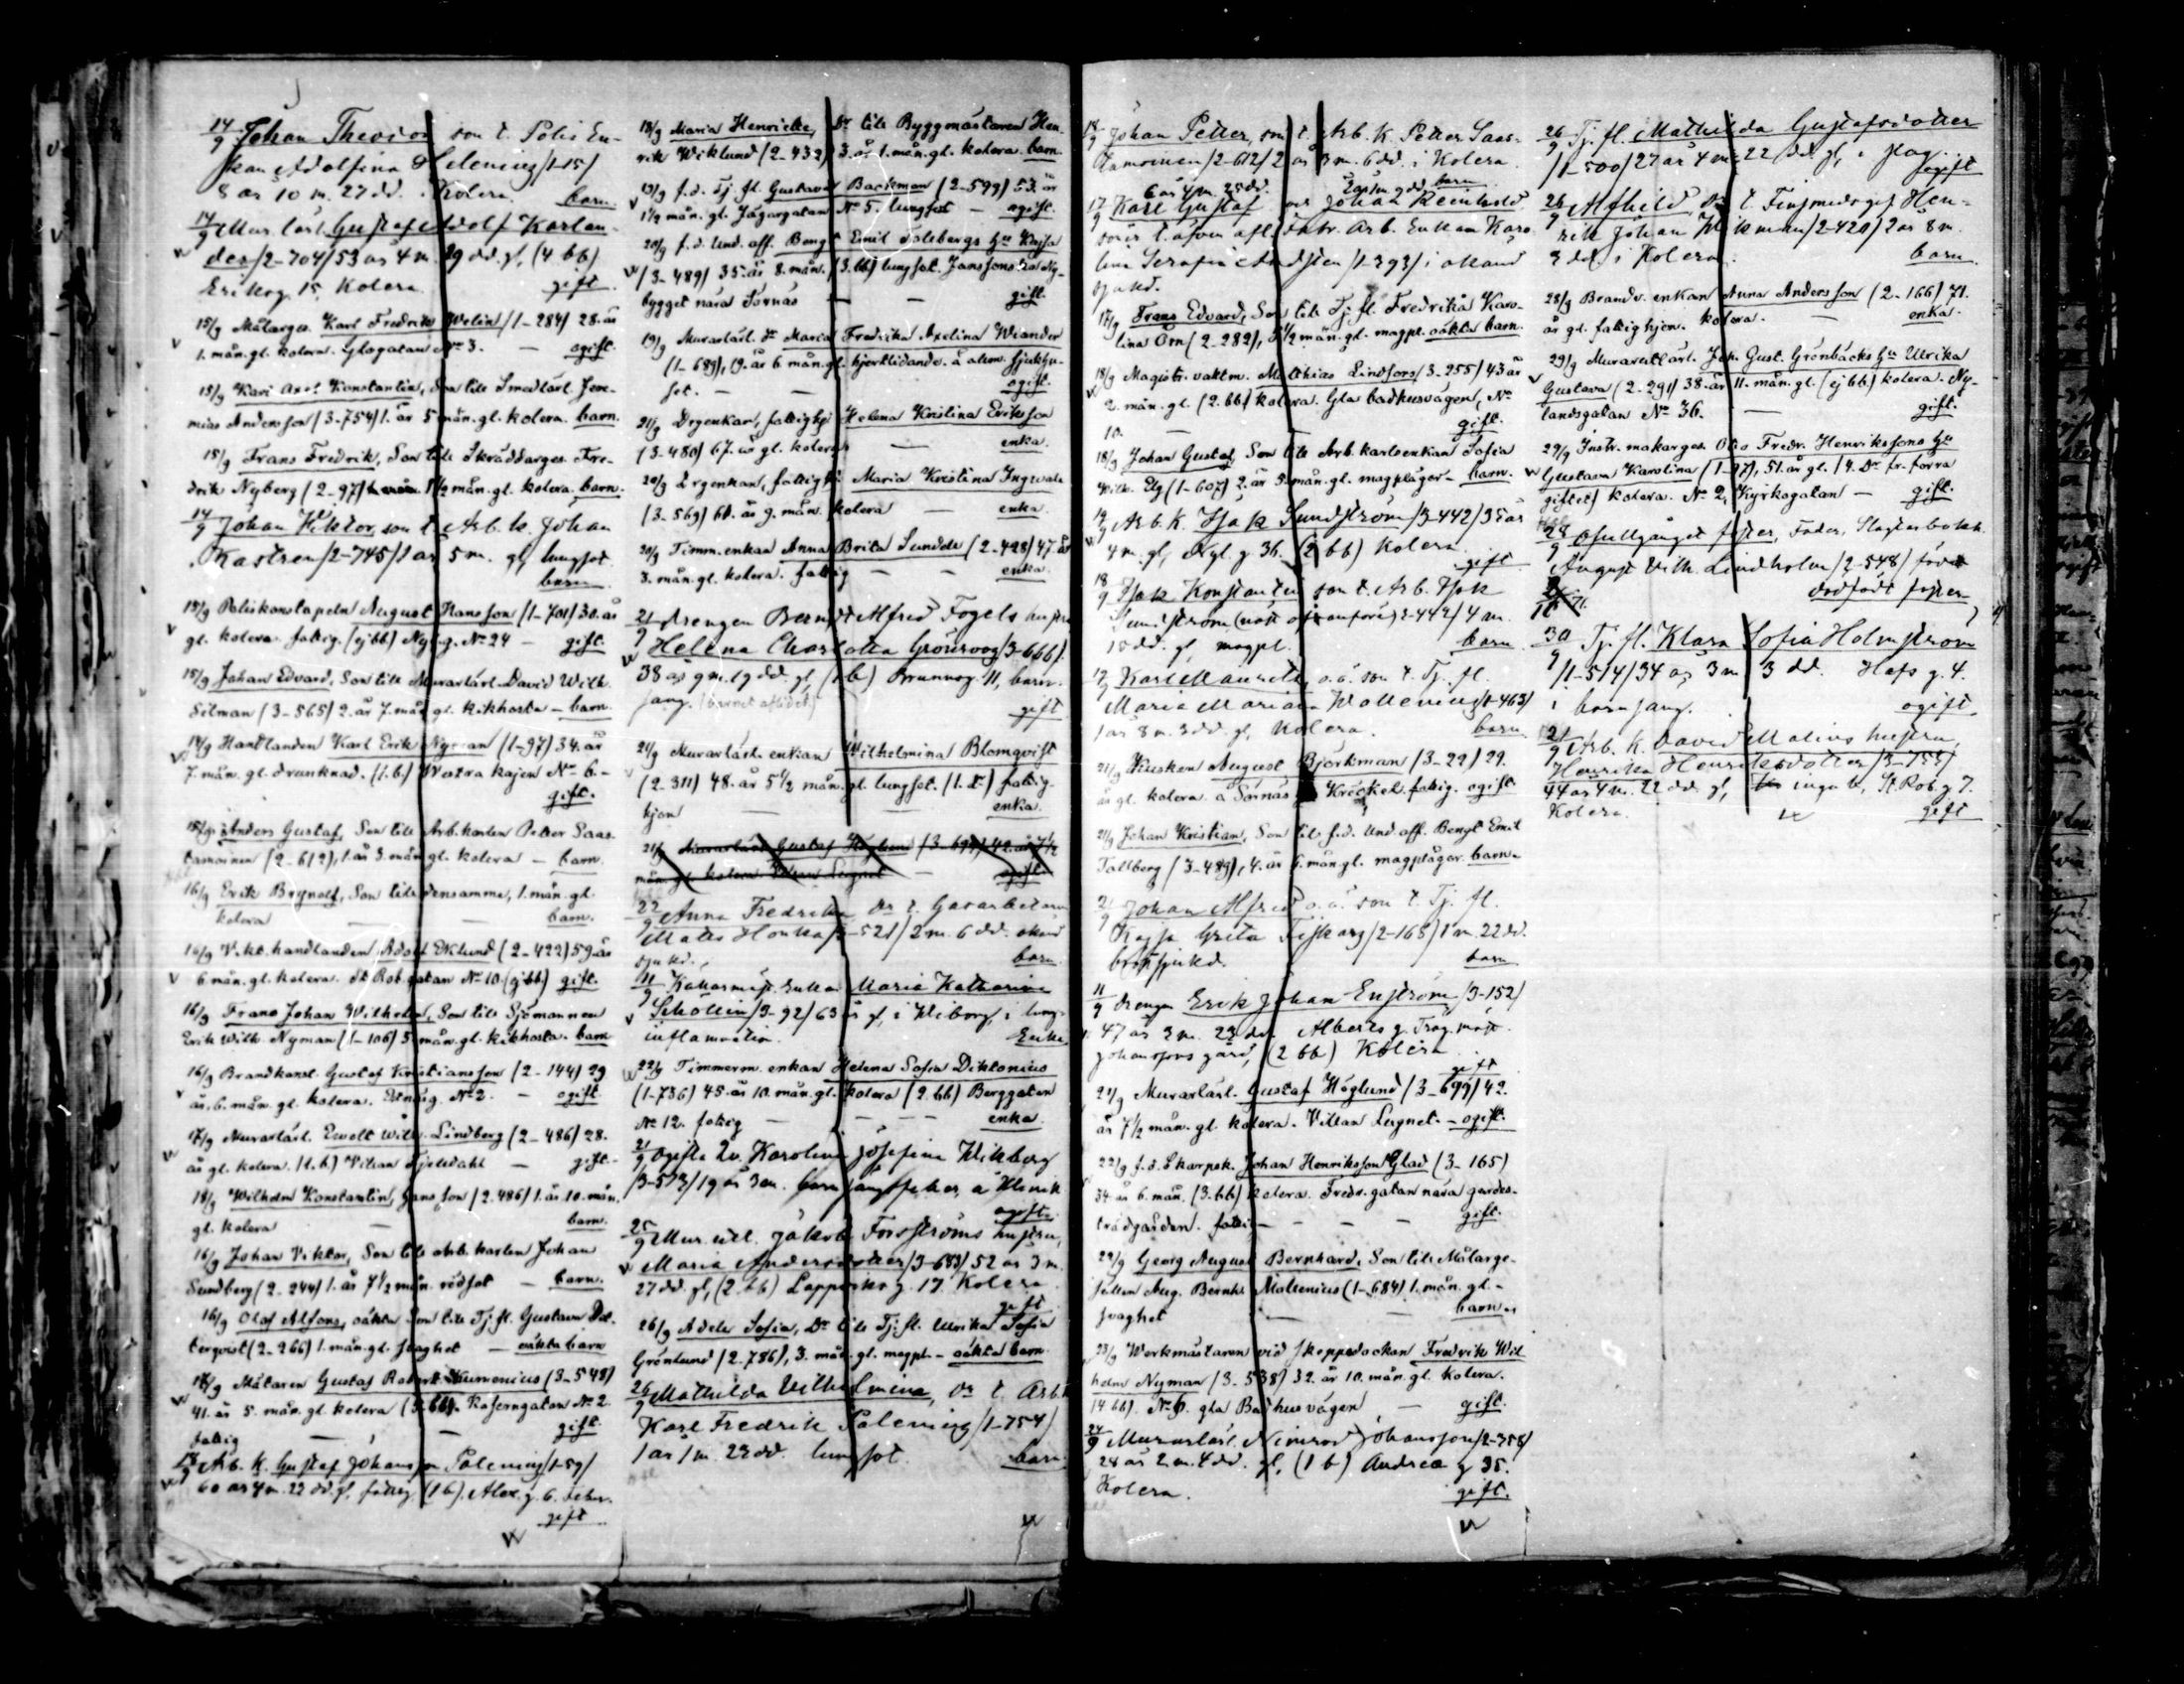 14/9 Johan Theodor son t. Polis En-
kan Adolfina Helenius /1-15/
8 år 10 m. 27 dd. Kolera. barn.
14/9 Mur. lärl. Gustaf Adolf Karlan-
der /2-704/ 53 år 4 m. 29 dd. gl, (4 bb)
Eriksg. 15, Kolera gift.
15/9 Målarges. Karl Fredrik Welin /1-284/ 28. år
1. mån. gl. kolera. Glogatan No 3. — ogift.
15/9 Karl Axel Konstantin, son till Smedlärl. Jere-
mias Andersson /3-754/ 1. år 5 mån. gl. kolera. barn.
15/9 Frans Fredrik, Son till Skräddarges. Fre-
drik Nyberg (2-97) 1 1/2 mån. gl. kolera. barn.
14/9 Johan Viktor son t. Arb. k. Johan
Kastren /2-745/ 1 år 5 m. gl, lungsot.
barn
15/9 Poliskonstapeln August Hansson /1-701/ 30. år
gl. kolera. fattig. (ej bb) Nyl. g. No 24 — gift.
15/9 Johan Edvard, Son till Murarlärl. David Wilh.
Silman (3-565) 2. år 7. mån. gl. kikhosta — barn.
14/9 Handlanden Karl Erik Nyman (1-97) 34. år
7. mån. gl. drunknad. (1. b.) Westra kajen No 6. —
gift.
15/9 Anders Gustaf, Son till Arb. karlen Petter Saas-
tamoinen (2-612), 1. år 3. mån. gl. kolera — barn.
16/9 Erik Brynolf, Son till densamma, 1. mån. gl.
kolera — barn.
16/9 V.kt. handlanden Adolf Eklund (2-422) 59. år
6 mån. gl. kolera. St Rob. gatan No 10. (ej bb) gift.
16/9 Frans Johan Wilhelm, Son till Sjömannen
Erik Wilh. Nyman (1-106) 5 mån. gl. kikhosta. barn
16/9 Brandkonst. Gustaf Kristiansson (2-144) 29
år. 6. mån. gl. kolera. No 2. — ogift.
17/9 Murarlärl. Ewolt Wilh. Lindberg (2-486) 28.
år gl. kolera. (1. b.) Villan — gift.
18/9 Wilhelm Konstantin, hans son (2.486) 1. år 10. mån.
gl. kolera — barn.
16/9 Johan Viktor, Son till Arb. karlen Johan
Sundberg (2-244) 1. år 7 1/2 mån. rödsot — barn.
16/9 Olof Alfons, oäkta Son till Tj. fl. Gustava Det-
terqvist (2-266) 1. mån. gl. svaghet — oäkta barn
18/9 Målaren Gustaf Robert Numenius (3-548)
41. år 5. mån. gl. kolera Kaserngatan No 2
fattig — gift.
18/9 Arb. K. Gustaf Johansson Palenius /1-59/
60 år 4 m. 22 dd. gl, fattig (1 b). Alex. g. 6.
gift
18/9 Maria Henriette, Dr till Byggmästaren Hen-
rik Wiklund (2-432) 3. år 1. mån. gl. kolera. barn.
13/9 f.d. Tj. fl. Gustava Backman (2-599) 53. år
1 1/2 mån. gl. Jägargatan No 5. lungsot — ogift.
20/9 f.d. Und. off. Bengt Emil Tallbergs hu Kajsa
(3-489) 35. år 8. mån. (3. bb) lungsot. Janssons ny-
bygget nära Sörnäs — — gift.
19/9 Murarlärl. dr Maria Fredrika Axelina Wiander
(1-689), 19. år 6 mån. gl. hjertlidande. å alem. sjukhu-
set. — — ogift.
21/9 Drgenkan, fattighj. Helena Kristina Eriksson
(3-480) 67. år gl. kolera — enka.
20/9 Drgenkan, fattighj. Maria Kristina Ingwald
(3-569) 61. år 9. mån. kolera — enka.
20/9 Timm. enkan Anna Brita Sundell (2-428) 47. år
3. mån. gl. kolera. fattig — — enka.
21/9 Drengen Berndt Alfred Fogels hustru
Helena Charlotta Grönroos /3-666/.
38 år 9 m. 19 dd. gl, (1 b) Brunnsg. 11, barn-
säng. (barnet aflidet) gift
21/9 Murarlärl. enkan Wilhelmina Blomqvist
(2-311) 48. år 5 1/2 mån. gl. lungsot. (1. b) fattig-
hjon — — enka.
21/9 Murarlärl. Gustaf Höglund (3-699) 42. år 7 1/2
mån. gl. kolera. Villan Lugnet — ogift.
22/9 Anna Fredrika dr t. Gasarbetaren
Mats Honka /2-521/ 2 m. 6 dd. okänd
sjukd. barn
11/9 Källarmäst. Enkan Maria Katharina
Schöttin /3-92/ 63 år gl, i Wiborg, i lung-
inflamation. Enka
22/9 Timmerm. enkan Helena Sofia Diktonius
(1-736) 45. år 10. mån. gl. kolera (2. bb) Berggatan
No 12. fattig — — — enka.
21/9 Ogifta Qv. Karolina Josefina Wikberg
/3-573/ 19 år 3 m. barnsängsfeber, å Klinik
ogift.
25/9 Mur. utl. Jakob Forsströms hustru,
Maria Andersdotter /3-683/ 52 år 3 m.
27 dd. gl, (2. bb) Lappviks g. 17. Kolera
gift
26/9 Adele Sofia, Dr till Tj. fl. Ulrika Sofia
Grönlund (2-786), 3. mån. gl. magpl. — oäkta barn.
26/9 Mathilda Vilhelmina, dr t. Arb. k
Karl Fredrik Palenius /1-754/
1 år 1 m. 23 dd. lungsot. barn.
18/9 Johan Petter, son t. Arb. K. Petter Saas-
tamoinen /2-612/ 2 år 3 m. 6 dd. i Kolera.
6 år 4 m. 25 dd. barn
17/9 Karl Gustaf och Johan Reinhold
söner t. afl. Arb. Enkan Karo-
lina Serafia Andsten /1-393/ i okänd
sjukd.
17/9 Frans Edvard, Son till Tj. fl. Fredrika Karo-
lina Örn (2-282), 5 1/2 mån. gl. magpl. oäkta barn.
18/9 Magistr. vaktm. Matthias Lindfors (3-255) 43 år
2. mån. gl. (2. bb) kolera. Gla badhusvägen, No
10. — gift.
18/9 Johan Gustaf, Son till Arb. karlsenkan Sofia
Wilh. Elg (1-607) 2. år 5. mån. gl. magplågor — barn.
19/9 Arb. K. Isak Sundström /3-442/ 35 år
4 m. gl, Nyl. g. 36. (2 bb) Kolera.
gift
18/9 Isak Konstantin son t. Arb. Isak
Sundström (näst ofvanföre) 3-442 / 4 m.
15 dd. gl, magpl. barn
17/9 Karl Mauritz, o.ä. son t. Tj. fl.
Maria Mariana Wallenius /1-463/
1 år 8 m. 3 dd. gl, Kolera. barn
21/9 Kusken August Björkman (3-22) 29.
år gl. kolera å Sörnäs Kröckel. fattig. ogift
21/9 Johan Kristian, Son till f.d. Und. off. Bengt Emil
Tallberg (3-489), 4. år 6. mån. gl. magplågor. barn.
21/9 Johan Alfred o.ä. son t. Tj. fl.
Kajsa Greta Fiskars /2-168/ 1 m. 22 dd.
bröstsjukd. barn
11/9 drengen Erik Johan Enström /3-152/
47 år 3 m. 23 dd. Alberts g. Träg. mäst.
Johanssons gård, (2 bb) Kolera.
gift
21/9 Murarlärl. Gustaf Höglund (3-699) 42.
år 7 1/2 mån. gl. kolera. Villan Lugnet. — ogift.
22/9 f.d. Skarpsk. Johan Henriksson Glad (3-165)
34 år 6. mån. (3. bb) kolera. Fredr. gatan nära gardes-
trädgården. fattig — — — gift.
22/9 Georg August Bernhard, Son till Målarge-
sällen Aug. Bernh. Mallenius (1-684) 1. mån. gl. —
svaghet — — barn.
23/9 Werkmästaren vid skeppsdockan Fredrik Wil
helm Nyman (3-538) 32. år 10. mån. gl. kolera.
(4 bb). No 6. gla Badhusvägen — gift.
24/9 Murarlärl. Nimrod Johansson /2-358/
28 år 2 m. 4 dd. gl, (1 b) Andreæ g 35.
Kolera. gift.
26/9 Tj. fl. Mathilda Gustafsdotter
/1-500/ 27 år 4 m. 22 dd. gl, i slag.
ogift
26/9 Alfhild, dr t. Finsmedsges. Hen-
rik Johan Wikman /2-420/ 2 år 8 m.
3 dd. i Kolera. barn
28/9 Brandv. enkan Anna Andersson (2-166) 71.
år gl. fattighjon. kolera. — enka.
29/9 Murareutlärl. Joh. Gust. Grönbäcks hu Ulrika
Gustava (2-291) 38. år 11. mån. gl. (ej bb) kolera. Ny-
landsgatan No 36. — gift.
29/9 Instr. makarges. Otto Fredr. Henrikssons hu
Gustava Karolina (1-97), 51. år gl. (4. Dr fr. förra
giftet) kolera. No 2, Kyrkogatan — gift.
28/9 Ofullgånget foster, Fader, Slagtarbokh.
August Vilh. Lindholm /2-548/ född
dödfödt foster
30/9 Tj. fl. Klara Sofia Holmström
/1-514/ 34 år 3 m 3 dd. Hafs g. 4.
i barnsäng. ogift,
21/9 Arb. K. David Malins hustru,
Henrika Henriksdotter /3-755/
44 år 4 m. 22 dd. gl, inga b, St. Rob. g 7.
Kolera. gift